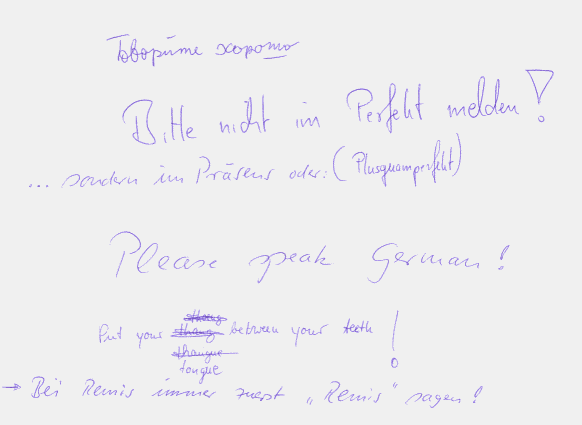 Говорите хорошо
Bitte nicht im Perfekt melden!
... sondern im Präsens oder: (Plusquamperfekt)
Please speak German!
Put your tongue between your teeth!
→ Bei Remis immer zuerst „Remis“ sagen!